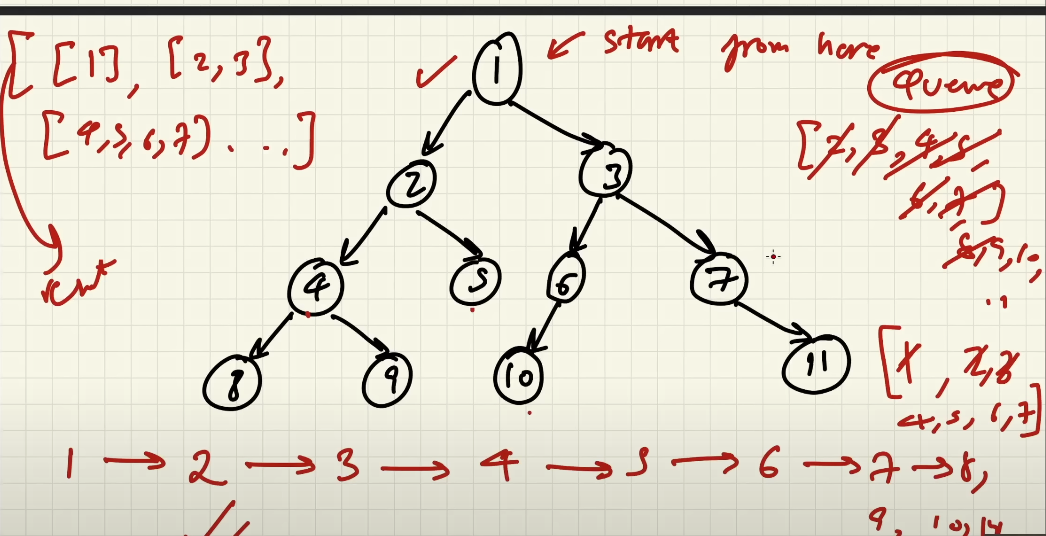 [ [1], [2,3],
[4,5,6,7) . . .. ]
start from here
Queue
[2, 3, 4, 5,
6, 7]
8, 9, 10,
..
1
2 3
4 5 6 7
8 9 10 11
[1, 2,3
4,5,6,7]
1 → 2 → 3 → 4 → 5 → 6 → 7 → 8,
9, 10, 11